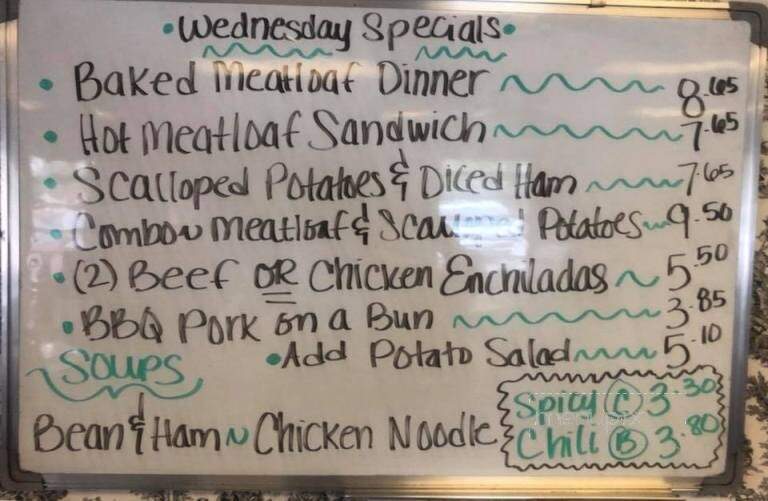 •Wednesday Specials•
• Baked Meatloaf Dinner 8.65
• Hot Meatloaf Sandwich 7.65
• Scalloped Potatoes & Diced Ham 7.65
• Combo~ Meatloaf & Scalloped Potatoes 9.50
• (2) Beef OR Chicken Enchiladas ~ 5.50
• BBQ Pork on a Bun 3.85
•Add Potato Salad 5.10
Soups
Bean & Ham ~ Chicken Noodle
Spicy (C) 3.30
Chili (B) 3.80